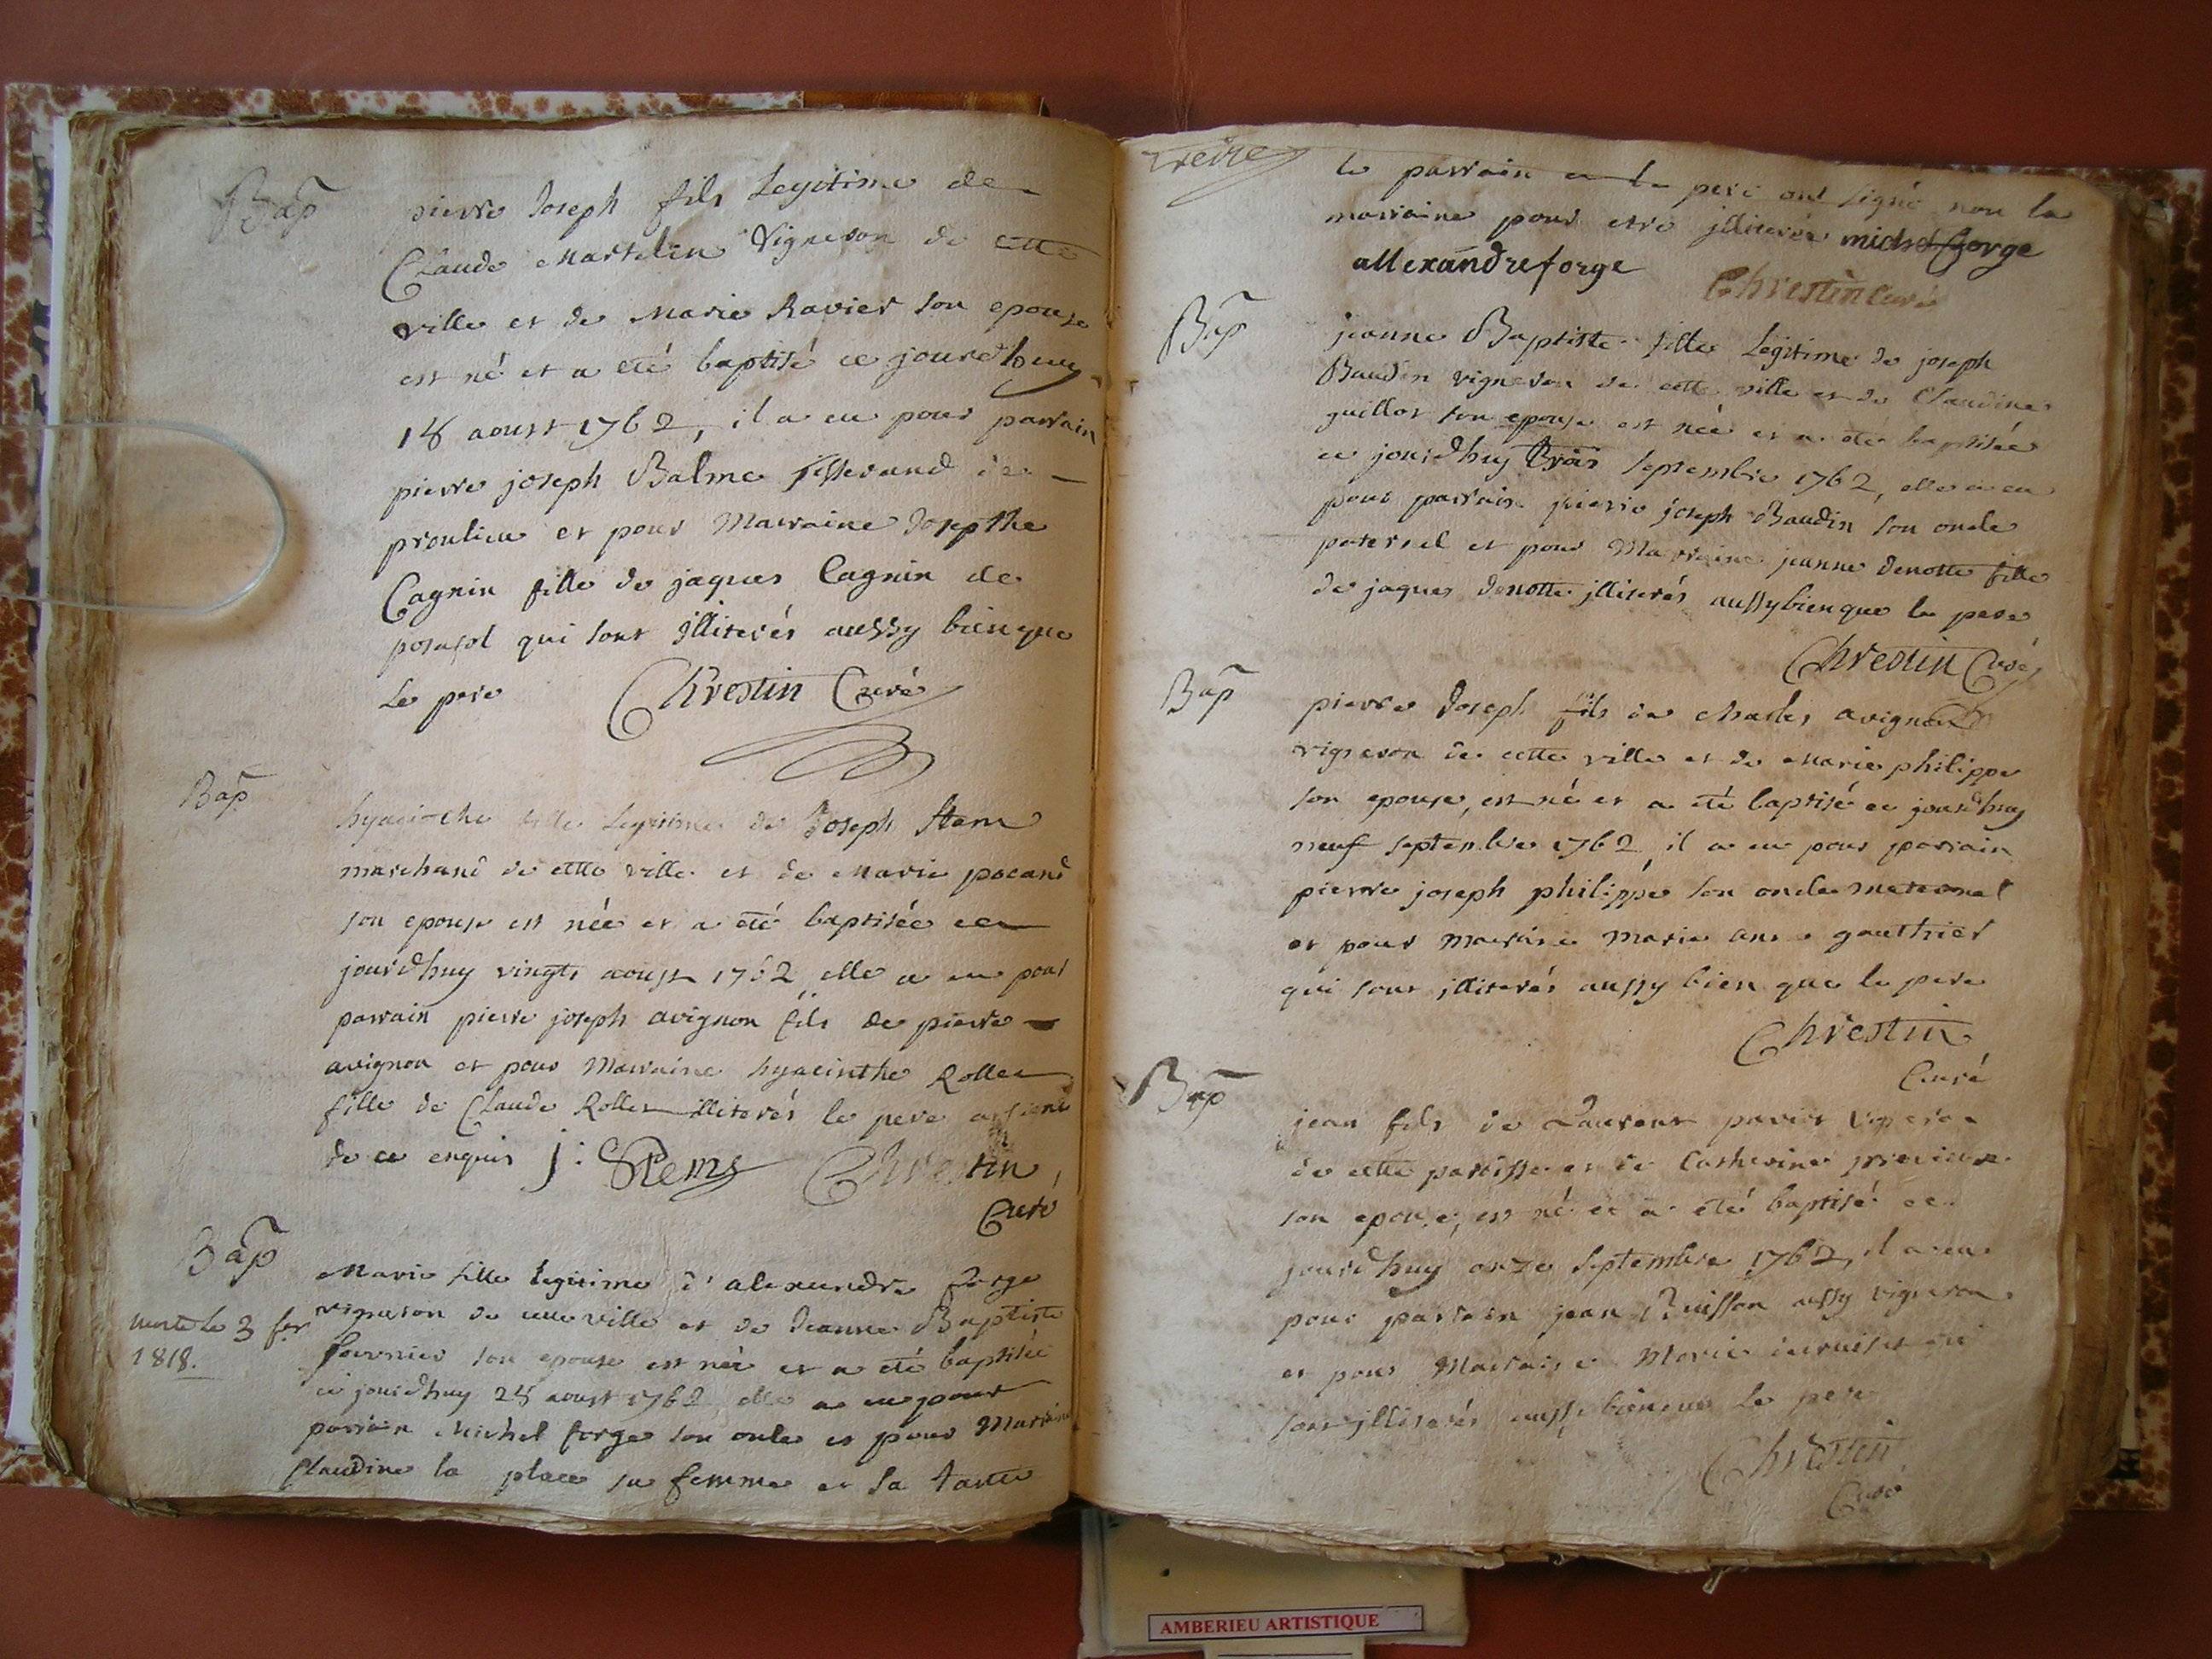 Bap
pierre Joseph fils Legitime de
Claude Martelin Vigneron de cette
ville et de Marie Ravier son epouse
est né et a eté baptisé ce jourdhuy
18 aoust 1762, il a eu pour parrain
pierre joseph Balme tisserand de
proulieu et pour Marraine Josepthe
Cagnin fille de jaques Cagnin de
posafol qui sont illiterés aussy bien que
Le pere Chrestin Curé
Bap
hyacinthe fille Legitime de Joseph Stem
marchand de cette ville et de Marie pocand
son epouse est née et a été baptisée ce
jourdhuy vingts aoust 1762 elle a eu pour
parrain pierre joseph avignon fils de pierre
avignon et pour Marraine hyacinthe Rollet
fille de Claude Rollet illiterés le pere a signé
de ce enquis j: Stems Chrestin
Curé
Bap
Marie fille legitime d'alexandre forge
vigneron de cette ville et de Jeanne Baptiste
morte le 3 fer
1818.
fournier son epouse est née et a eté baptisée
ce jourdhuy 28 aoust 1762 elle a eu pour
parrain Michel forge son oncle et pour Marraine
Claudine la place sa femme et sa tante
treize
le parrain et le pere ont signé non la
marraine pour etre illiterée michel forge
allexandre forge Chrestin Curé
Bap
jeanne Baptiste fille Legitime de joseph
Baudin vigneron de cette ville et de Claudine
guillot son epouse est née et a eté baptisée
ce jourdhuy trois septembre 1762, elle a eu
pour parrain pierre joseph Baudin son oncle
paternel et pour Marraine jeanne denotte fille
de jaques denotte illiterés aussy bien que le pere
Chrestin Curé
Bap
pierre Joseph fils de charles avignon
vigneron de cette ville et de Marie philippe
son epouse, est né et a eté baptisé ce jourdhuy
neuf septembre 1762, il a eu pour parrain
pierre joseph philippe son oncle maternel
et pour marraine marie anne gauthier
qui sont illiterés aussy bien que le pere
Chrestin
Curé
Bap
jean fils de Laurent pavier vigneron
de cette paroisse et de Catherine
son epouse, est né et a eté baptisé ce
jourdhuy onze septembre 1762, il a eu
pour parrain jean Buisson aussy vigneron
et pour Marraine Marie qui
sont illiterés aussy bien que le pere
Chrestin
Curé
AMBERIEU ARTISTIQUE